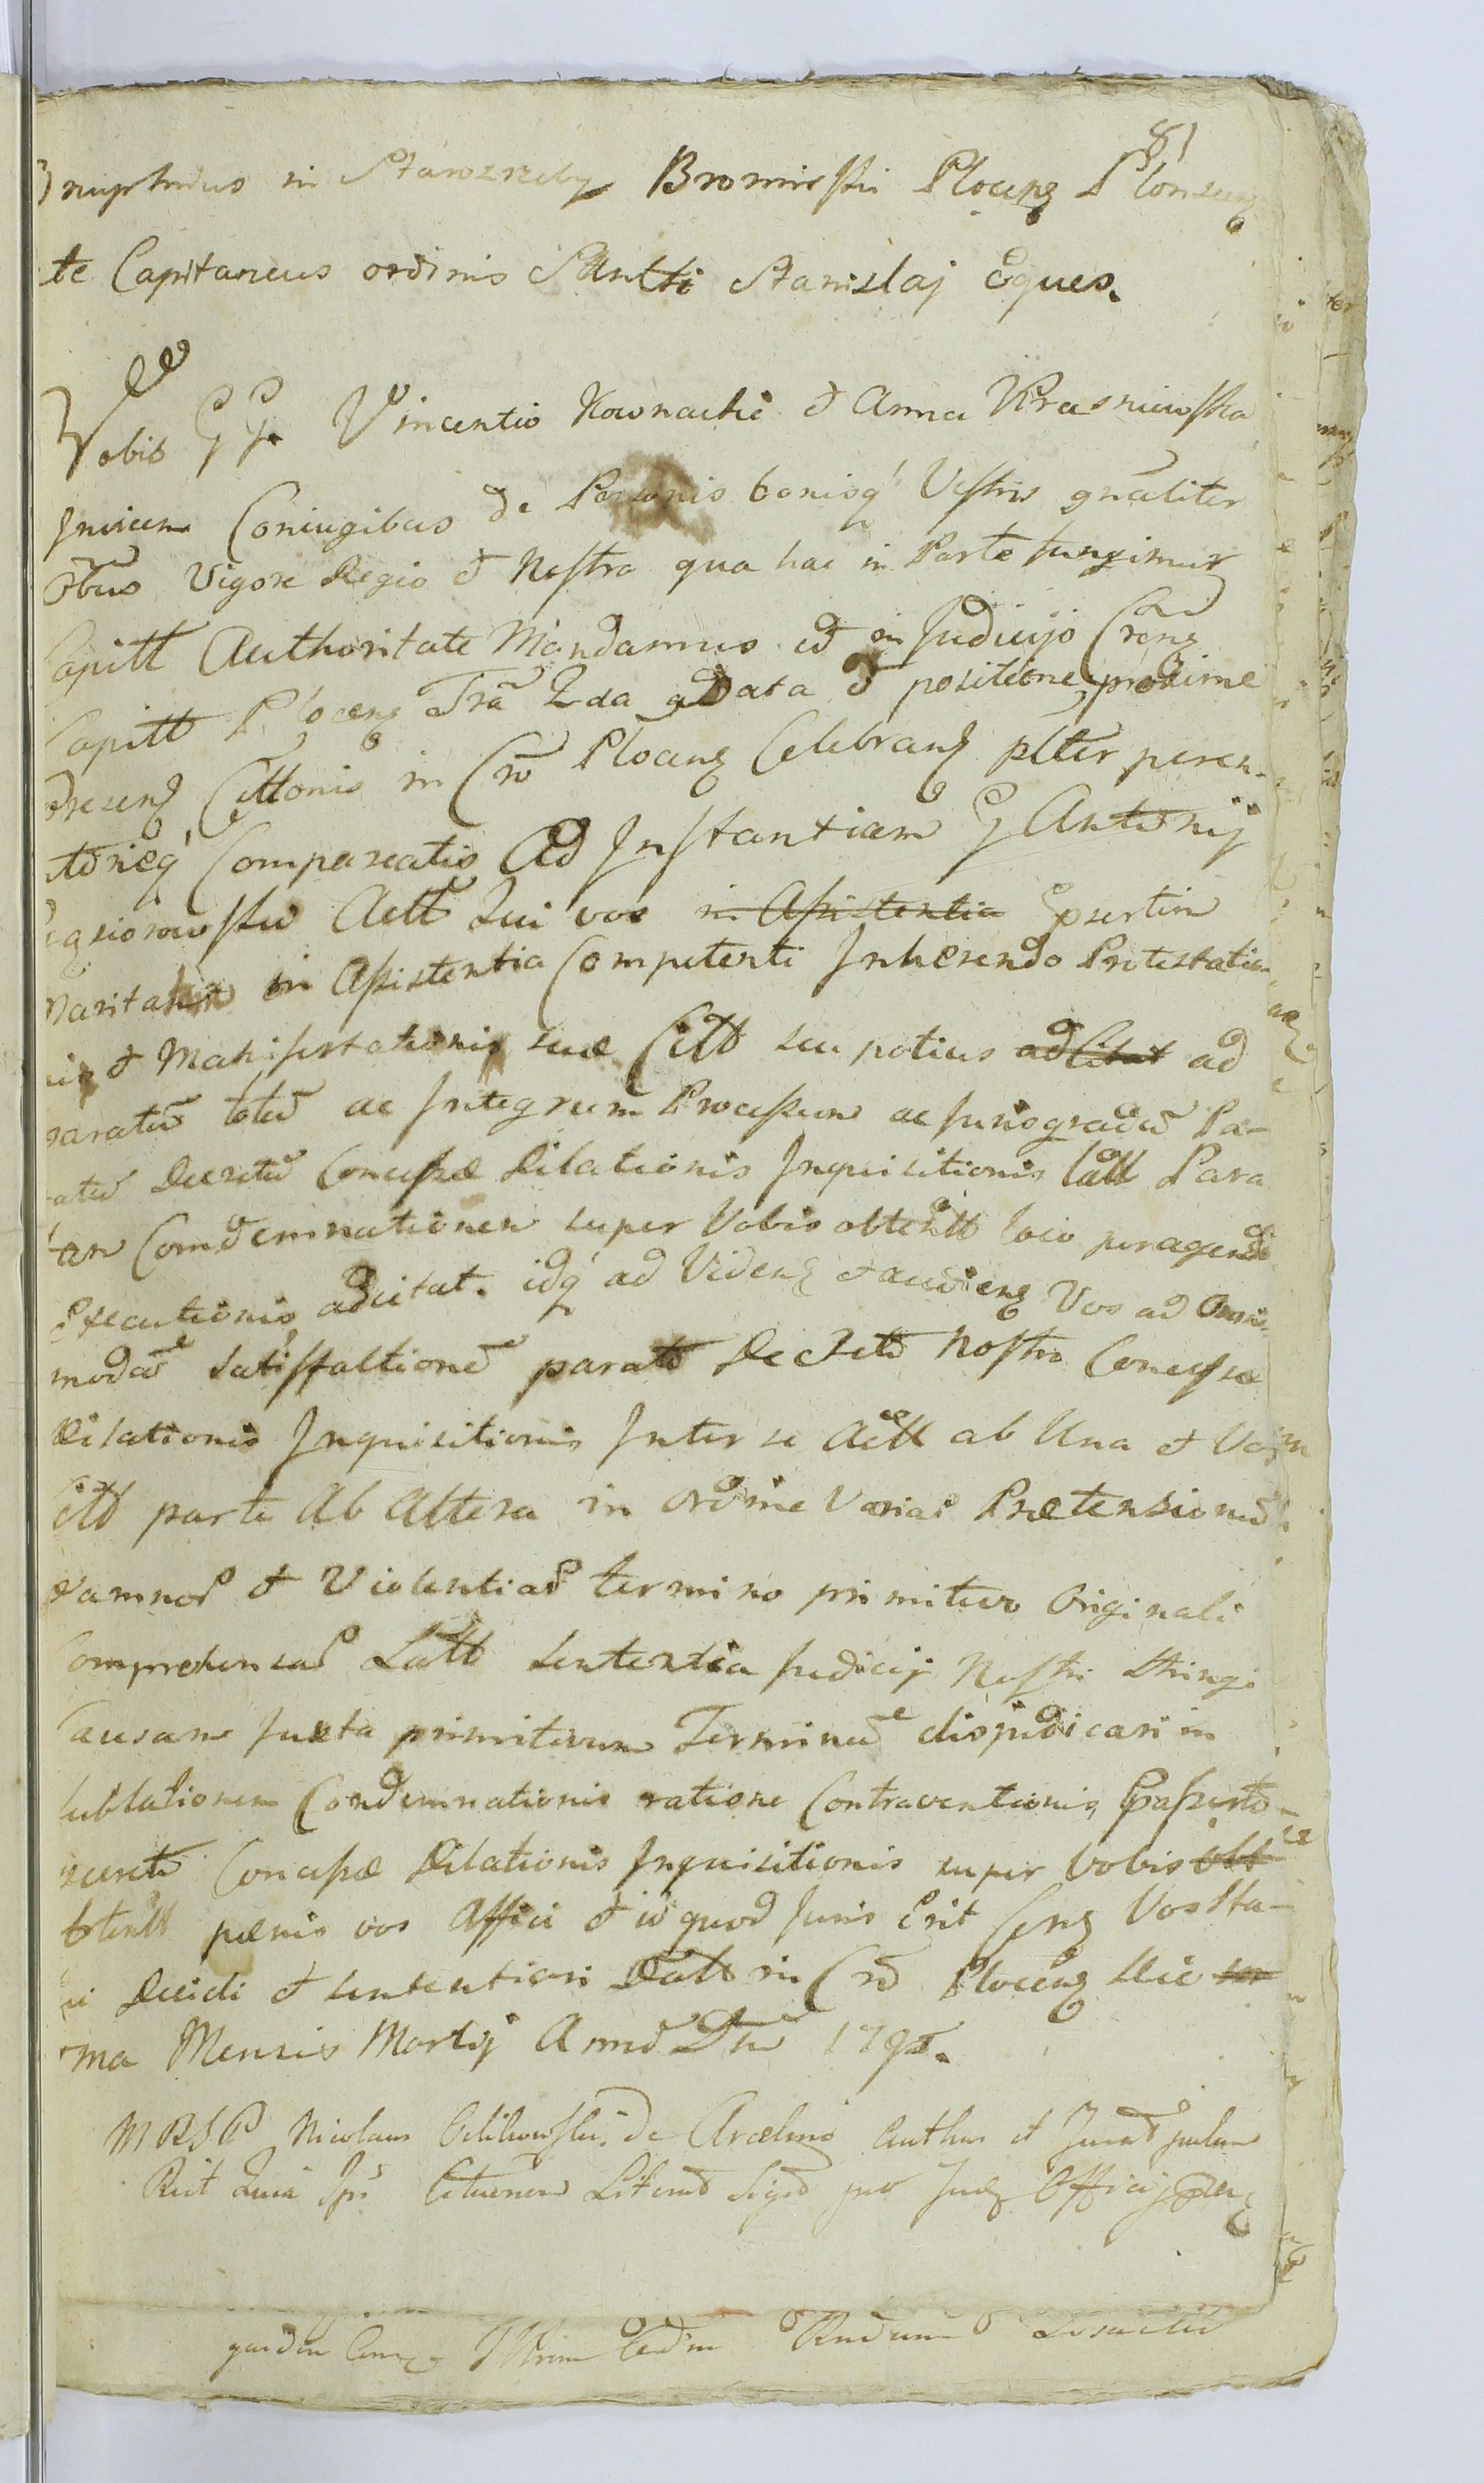 81
nuphrius in Starozreby Bromirski Plocens Plonscens
te Capitaneus ordinis Santti Stanislaj Eques.
Vobis GG. Vincentio Kownachi et Anna Krasniewska
Invicem Coniugibus de Personis bonisq Vestris gnāliter
oībus Vigore Regio et Nostra qua hac in Parte fungimur
Capitt Authoritate Mandamus ut in Judicijo Crens
Capitt Plocens Tra 2da a Data et positione proxime
Presens Cittonis in Cro Plocens Celebrans pltter peren-
torieq Compareatis Ad Instantiam G Antonij
Actt Qui vos in Assistentia Exsertim
Maritatam in Assistentia Competenti Inherendo Protestatio
nis et Manifestationis suæ Citt seu potius adCitat ad
paratū totū ac Integrum Processum ac Jurisgradū Pa-
ratū Decretū Concessæ Dilationis Inquisitionis latt Para
tan Condemnationem super Vobis obtentt loco peragende
Executionis adcitat. idq ad Videns et audiens Vos ad Omni-
modā satisfactionē parato Decreto Nostro Concessæ
Dilationis Inquisitionis Inter se Actt ab Una et Vos
citt parte Ab Altera in ordine Varias Prætensionū
Damnor et Violentiar termino primitivo Originali
Comprehensar Latt Sententia Judicij Nostri Stringi
Causam Juxta primitivum Terminū disjudicari in
sublationem Condemnationis ratione Contraventionis,
Decreto Concessæ Dilationis Inquisitionis super Vobis ott
obtentt pænis vos Affici et id quod Juris Erit Cens Vos sta-
ui Decidi et sententiari Datt in Cro Plocens Die
ma Mensis Martij Anno Dni 1795.
MRSP Nicolaus de Arcelino Author et
Rit Quia Ips Literas pro Officij